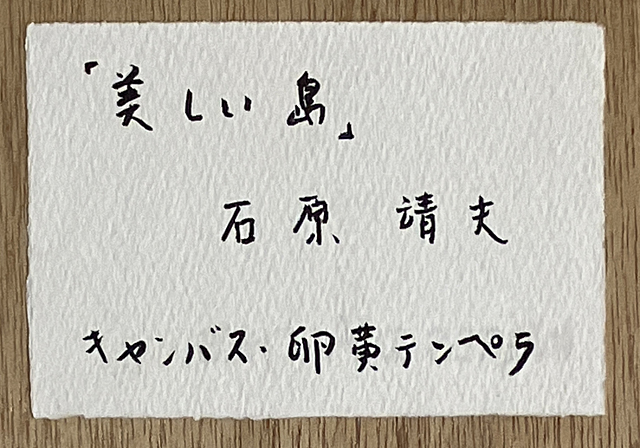 「美しい島」
石原 靖夫
キャンバス・卵黄テンペラ